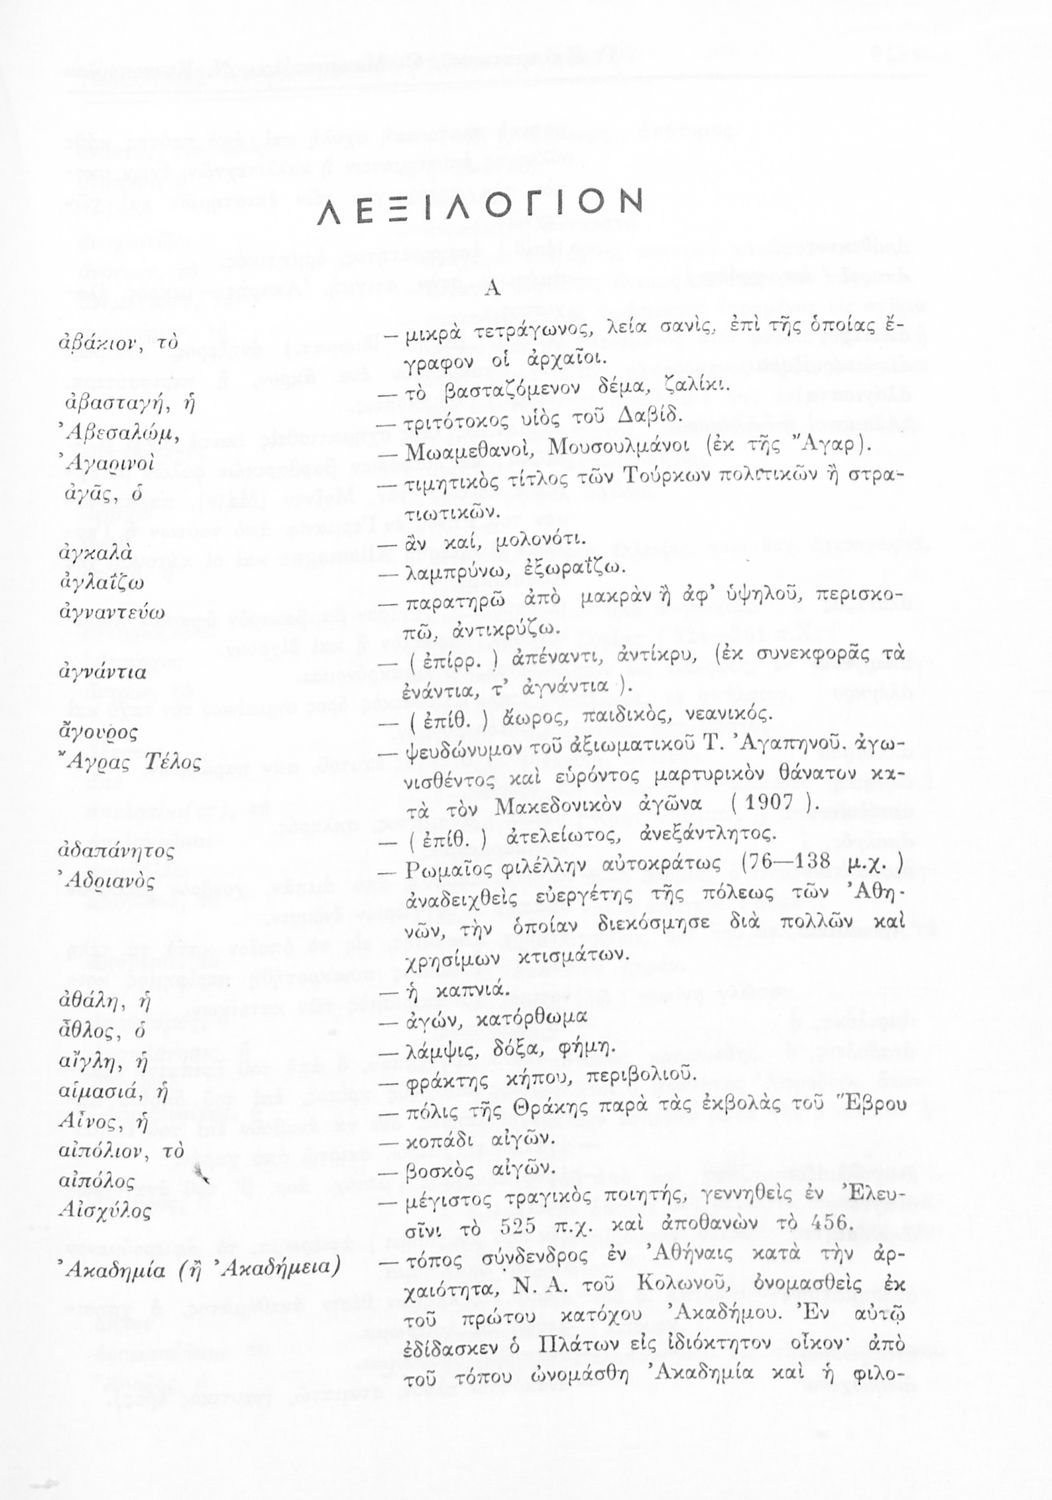 ΛΕΞΙΛΟΓΙΟΝ
Α
ἀβάκιον, τὸ — μικρὰ τετράγωνος, λεία σανὶς, ἐπὶ τῆς ὁποίας ἔ-
γραφον οἱ ἀρχαῖοι.
ἀβασταγή, ἡ — τὸ βασταζόμενον δέμα, ζαλίκι.
Ἀβεσαλώμ, — τριτότοκος υἱὸς τοῦ Δαβίδ.
Ἀγαρινοὶ — Μωαμεθανοὶ, Μουσουλμάνοι (ἐκ τῆς Ἄγαρ).
ἀγᾶς, ὁ — τιμητικὸς τίτλος τῶν Τούρκων πολιτικῶν ἢ στρα-
τιωτικῶν.
ἀγκαλὰ — ἂν καί, μολονότι.
ἀγλαΐζω — λαμπρύνω, ἐξωραΐζω.
ἀγναντεύω — παρατηρῶ ἀπὸ μακρὰν ἢ ἀφ’ ὑψηλοῦ, περισκο-
πῶ, ἀντικρύζω.
ἀγνάντια — ( ἐπίρρ. ) ἀπέναντι, ἀντίκρυ, (ἐκ συνεκφορᾶς τὰ
ἐνάντια, τ’ ἀγνάντια ).
ἄγουρος — ( ἐπίθ. ) ἄωρος, παιδικὸς, νεανικός.
Ἄγρας Τέλος — ψευδώνυμον τοῦ ἀξιωματικοῦ Τ. Ἀγαπηνοῦ. ἀγω-
νισθέντος καὶ εὑρόντος μαρτυρικὸν θάνατον κα-
τὰ τὸν Μακεδονικὸν ἀγῶνα ( 1907 ).
ἀδαπάνητος — ( ἐπίθ. ) ἀτελείωτος, ἀνεξάντλητος.
Ἀδριανὸς — Ρωμαῖος φιλέλλην αὐτοκράτως (76—138 μ.χ. )
ἀναδειχθεὶς εὐεργέτης τῆς πόλεως τῶν Ἀθη-
νῶν, τὴν ὁποίαν διεκόσμησε διὰ πολλῶν καὶ
χρησίμων κτισμάτων.
ἀθάλη, ἡ — ἡ καπνιά.
ἆθλος, ὁ — ἀγών, κατόρθωμα
αἴγλη, ἡ — λάμψις, δόξα, φήμη.
αἱμασιά, ἡ — φράκτης κήπου, περιβολιοῦ.
Αἶνος, ἡ — πόλις τῆς Θράκης παρὰ τὰς ἐκβολὰς τοῦ Ἕβρου
αἰπόλιον, τὸ — κοπάδι αἰγῶν.
αἰπόλος — βοσκὸς αἰγῶν.
Αἰσχύλος — μέγιστος τραγικὸς ποιητής, γεννηθεὶς ἐν Ἐλευ-
σῖνι τὸ 525 π.χ. καὶ ἀποθανὼν τὸ 456.
Ἀκαδημία (ἢ Ἀκαδήμεια) — τόπος σύνδενδρος ἐν Ἀθήναις κατὰ τὴν ἀρ-
χαιότητα, Ν. Α. τοῦ Κολωνοῦ, ὀνομασθεὶς ἐκ
τοῦ πρώτου κατόχου Ἀκαδήμου. Ἐν αὐτῷ
ἐδίδασκεν ὁ Πλάτων εἰς ἰδιόκτητον οἶκον· ἀπὸ
τοῦ τόπου ὠνομάσθη Ἀκαδημία καὶ ἡ φιλο-